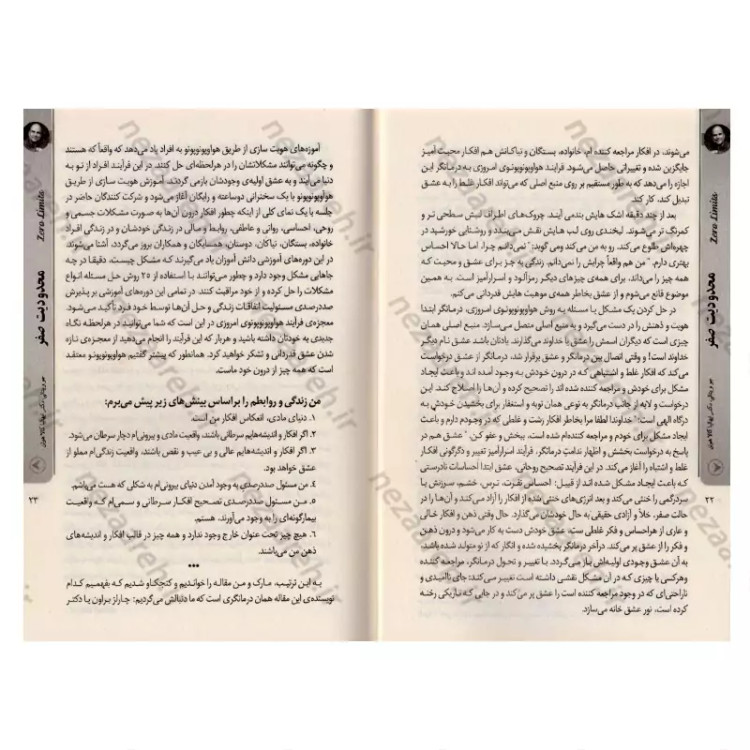 می‌شوند، در افکار مراجعه کننده ام، خانواده، بستگان و نیاکانش هم افکار محبت آمیز
جایگزین شده و تغییراتی حاصل می‌شود. فرایند هواوپونوپونوی امروزی به درمانگر این
اجازه را می‌دهد که به طور مستقیم بر روی منبع اصلی که می‌تواند افکار غلط را به عشق
تبدیل کند، کار کند.
بعد از چند دقیقه اشک هایش بندمی آیند. چروک‌های اطراف لبش سطحی تر و
کمرنگ تر می‌شوند. لبخندی روی لب هایش نقش می‌بندد و روشنایی خورشید در
چهره‌اش طلوع می‌کند. رو به من می‌کند ومی گوید: "نمی‌دانم چرا، اما حالا احساس
بهتری دارم." من هم واقعاً چرایش را نمی‌دانم. زندگی به جز برای عشق و محبت که
همه چیز را می‌داند، برای همه‌ی چیزهای دیگر رمزآلود و اسرارآمیز است. به همین
موضوع قانع می‌شوم و از عشق بخاطر همه‌ی موهبت هایش قدردانی می‌کنم.
در حل کردن یک مشکل یا مسئله به روش هواوپونوپونوی امروزی، درمانگر ابتدا
هویت و ذهنش را در دست می‌گیرد و به منبع اصلی متصل می‌سازد. منبع اصلی همان
چیزی است که دیگران اسمش را عشق یا خداوند می‌گذارند. یادتان باشد درمانگر عشق
خداوند است! و وقتی اتصال بین درمانگر و عشق برقرار شد، درمانگر از عشق درخواست
می‌کند که افکار غلط و اشتباهی که در درون خودش به وجود آمده اند و باعث ایجاد
مشکل برای خودش و مراجعه کننده شده اند را تصحیح کرده و آن‌ها را اصلاح کند. این
درخواست و لابه از جانب درمانگر به نوعی همان توبه و استغفار برای بخشیدن خودش به
درگاه الهی است: "خداوندا لطفا مرا بخاطر افکار زشت و غلطی که در وجودم دارم و باعث
ایجاد مشکل برای خودم و مراجعه کننده‌ام شده است، ببخش و عفو کن." عشق هم در
پاسخ به درخواست بخشش و اظهار ندامتِ درمانگر، فرآیند اسرارآمیز تغییر و دگرگونی افکار
غلط و اشتباه را آغاز می‌کند. در این فرآیند تصحیح روحانی، عشق ابتدا احساسات نادرستی
که باعث ایجاد مشکل شده اند از قبیل: احساس نفرت، ترس، خشم، سرزنش یا
سردرگمی را خنثی می‌کند و بعد انرژی‌های خنثی شده از افکار را آزاد می‌کند و آن‌ها را در
حالت صفر، خلأ و آزادی حقیقی به حال خودشان می‌گذارد. حال وقتی ذهن و افکار خالی
و عاری از هراحساس و فکر غلطی است، عشق خودش دست به کار می‌شود و درون ذهن
و فکر را از عشق پر می‌کند. درآخر درمانگر بخشیده شده و انگار که از نو متولد شده باشد.
به آن عشق وجودی اولیه‌اش باز می‌گردد. با تغییر و تحول درمانگر، مراجعه کننده
وهرکسی یا چیزی که در آن مشکل نقشی داشته است تغییر می‌کند: جای ناامیدی و
ناراحتی‌ای که در وجود مراجعه کننده است را عشق پر می‌کند و در جایی که تاریکی رخنه
کرده است، نور عشق خانه می‌سازد.
۲۲
Zero Limits
محدودیت صفر
آموزه‌های هویت سازی از طریق هواوپونوپونو به افراد یاد می‌دهد که واقعاً که هستند
و چگونه می‌توانند مشکلاتشان را در هرلحظه‌ای حل کنند. در این فرآیند افراد از نو به
دنیا می‌آیند و به عشق اولیه‌ی وجودشان بازمی گردند. آموزش هویت سازی از طریق
هواوپونوپونو با یک سخنرانی دوساعته و رایگان آغاز می‌شود و شرکت کنندگان حاضر در
جلسه با یک نمای کلی از اینکه چطور افکار درون آن‌ها به صورت مشکلات جسمی و
روحی، احساسی، روانی و عاطفی، روابط و مالی در زندگی خودشان و در زندگی افراد
خانواده، بستگان، نیاکان، دوستان، همسایگان و همکاران بروز می‌گردد، آشنا می‌شوند
در این دوره‌های آموزشی دانش آموزان یاد می‌گیرند که مشکل چیست، دقیقا در چه
جاهایی مشکل وجود دارد و چطور می‌توانند با استفاده از ۲۵ روش حل مسئله انواع
مشکلات را حل کرده و از خود مراقبت کنند. در تمامی این دوره‌های آموزشی بر پذیرش
صددرصدی مسئولیت اتفاقات زندگی و حل آن‌ها توسط خود فرد تأکید می‌شود.
معجزه‌ی فرآیند هواوپونوپونوی امروزی در این است که شما می‌توانید در هرلحظه نگاه
جدیدی به خودتان داشته باشید و هربار که این فرآیند را انجام می‌دهید از معجزه‌ی تازه
شدن عشق قدردانی و تشکر خواهید کرد. همانطور که پیشتر گفتیم هواوپونوپونو معتقد
است که همه چیز از درون خود ماست.
من زندگی و روابطم را براساس بینش‌های زیر پیش می‌برم:
۱. دنیای مادی، انعکاس افکار من است.
۲. اگر افکار و اندیشه‌هایم سرطانی باشند، واقعیت مادی و بیرونی‌ام دچار سرطان می‌شود.
۳. اگر افکار و اندیشه‌هایم عالی و بی عیب و نقص باشند، واقعیت زندگی‌ام مملو از
عشق خواهد بود.
۴. من مسئول صددرصدی به وجود آمدن دنیای بیرونی‌ام به شکلی که هست، هستم.
۵. من مسئول صددرصدی تصحیح افکار سرطانی و سمی‌ام که واقعیت
بیمارگونه‌ای را به وجود می‌آورند، هستم.
۶. هیچ چیز تحت عنوان خارج وجود ندارد و همه چیز در قالب افکار و اندیشه‌های
ذهن من می‌باشند.
***
به این ترتیب، مارک و من مقاله را خواندیم و کنجکاو شدیم که بفهمیم کدام
نویسنده‌ی این مقاله همان درمانگری است که ما دنبالش می‌گردیم: چارلز براون یا دکتر
۲۳
Zero Limits
محدودیت صفر
nezaareh.ir